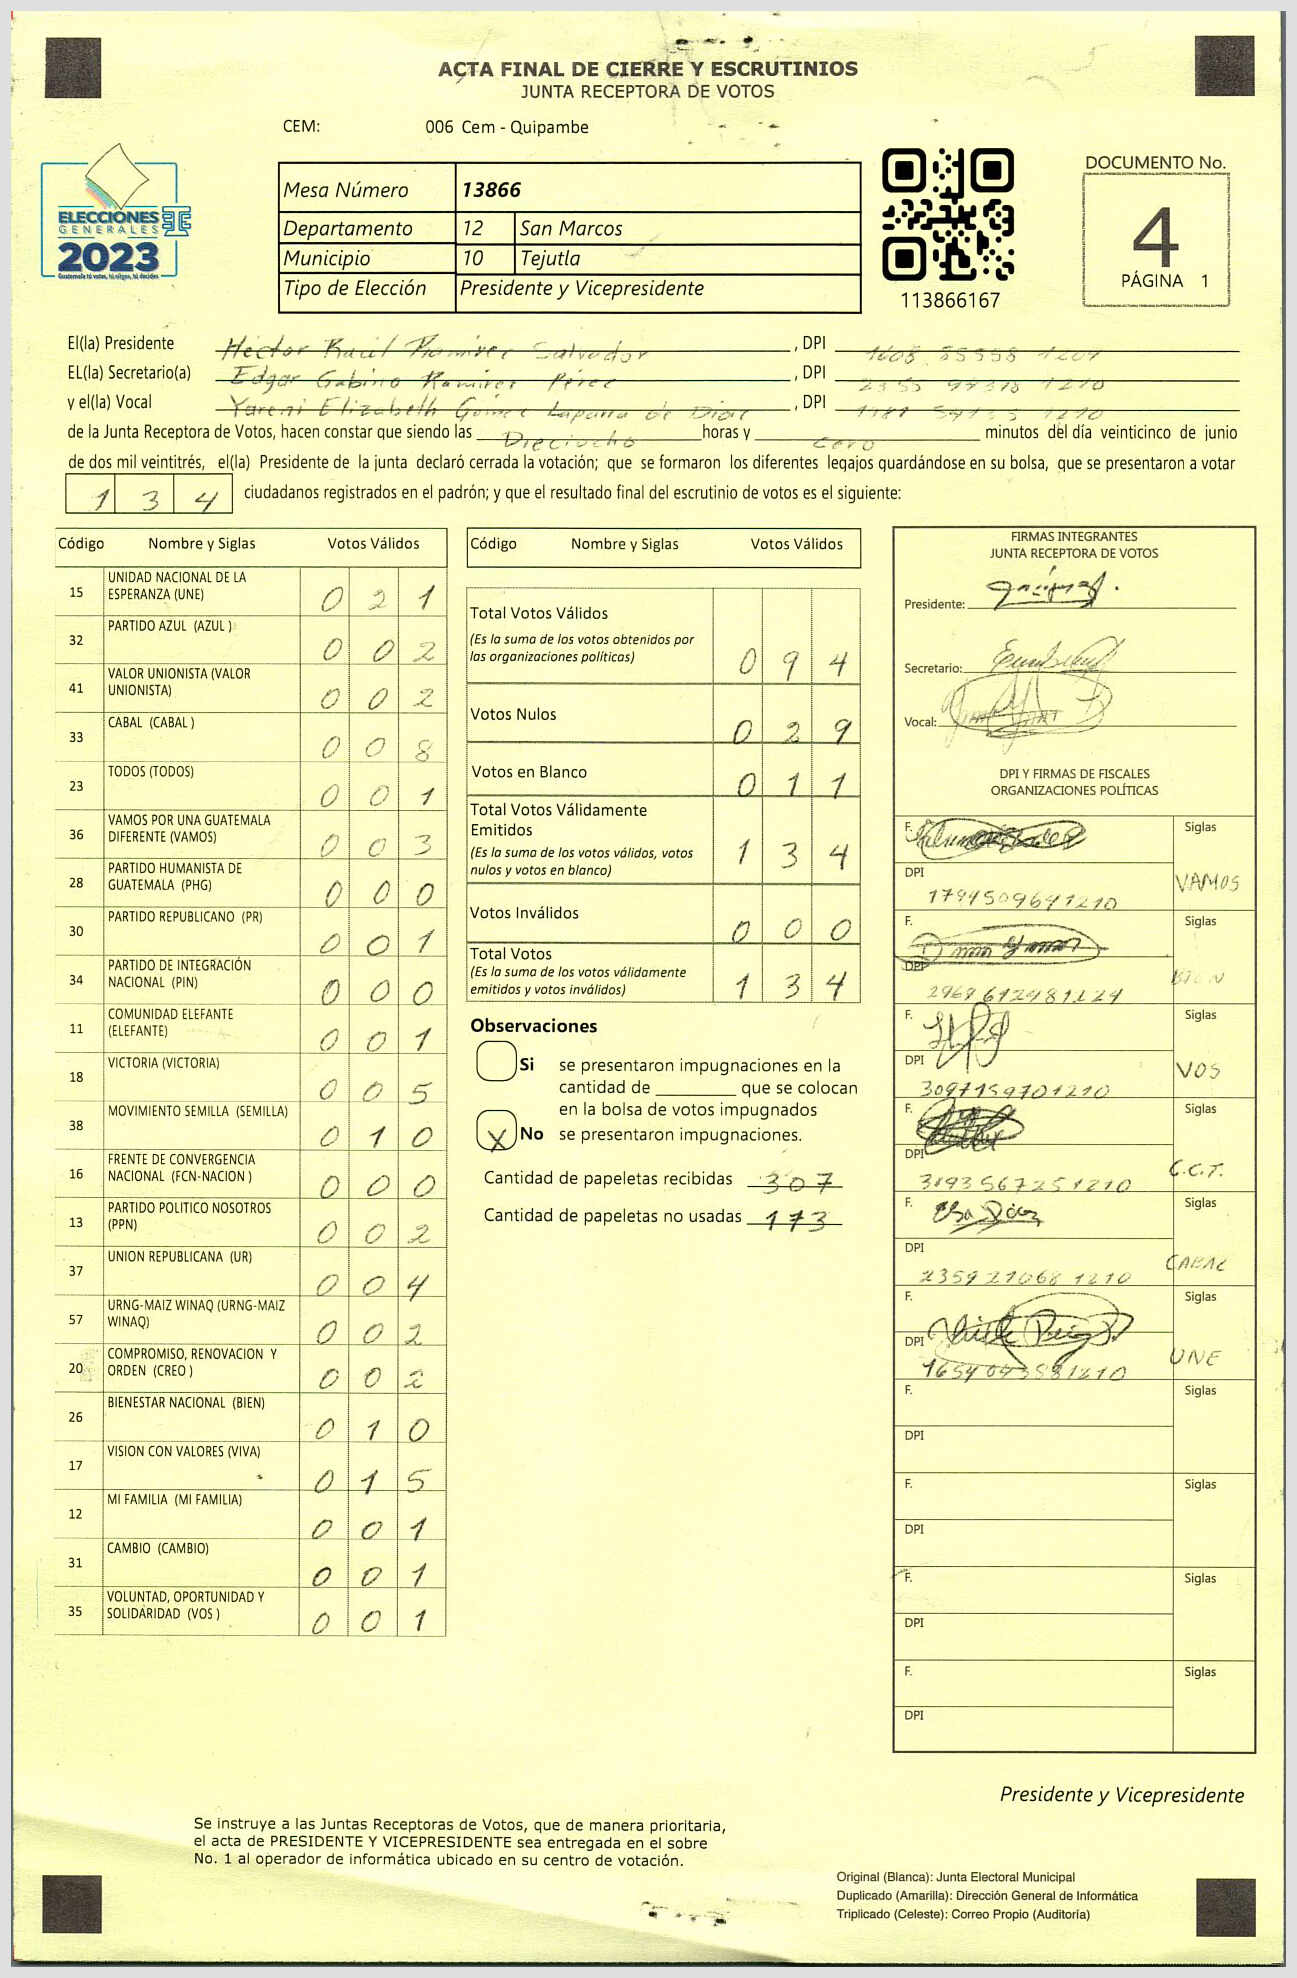 ACTA FINAL DE CIERRE Y ESCRUTINIOS
JUNTA RECEPTORA DE VOTOS
CEM: 006 Cem - Quipambe
ELECCIONES
GENERALES
2023
Guatemala tú votas, tú eliges, tú decides
Mesa Número 13866
Departamento 12 San Marcos
Municipio 10 Tejutla
Tipo de Elección Presidente y Vicepresidente
113866167
DOCUMENTO No.
4
PÁGINA 1
El(la) Presidente Héctor Raúl Ramírez Salvador, DPI
EL(la) Secretario(a) Edgar Gabino Ramírez Pérez, DPI
y el(la) Vocal Yareni Elizabeth Gómez de Díaz, DPI
de la Junta Receptora de Votos, hacen constar que siendo las Dieciocho horas y cero minutos del día veinticinco de junio
de dos mil veintitrés, el(la) Presidente de la junta declaró cerrada la votación; que se formaron los diferentes legajos guardándose en su bolsa, que se presentaron a votar
1 3 4 ciudadanos registrados en el padrón; y que el resultado final del escrutinio de votos es el siguiente:
Código Nombre y Siglas Votos Válidos
15 UNIDAD NACIONAL DE LA ESPERANZA (UNE) 0 2 1
32 PARTIDO AZUL (AZUL ) 0 0 2
41 VALOR UNIONISTA (VALOR UNIONISTA) 0 0 2
33 CABAL (CABAL ) 0 0 8
23 TODOS (TODOS) 0 0 1
36 VAMOS POR UNA GUATEMALA DIFERENTE (VAMOS) 0 0 3
28 PARTIDO HUMANISTA DE GUATEMALA (PHG) 0 0 0
30 PARTIDO REPUBLICANO (PR) 0 0 1
34 PARTIDO DE INTEGRACIÓN NACIONAL (PIN) 0 0 0
11 COMUNIDAD ELEFANTE (ELEFANTE) 0 0 1
18 VICTORIA (VICTORIA) 0 0 5
38 MOVIMIENTO SEMILLA (SEMILLA) 0 1 0
16 FRENTE DE CONVERGENCIA NACIONAL (FCN-NACION ) 0 0 0
13 PARTIDO POLITICO NOSOTROS (PPN) 0 0 2
37 UNION REPUBLICANA (UR) 0 0 4
57 URNG-MAIZ WINAQ (URNG-MAIZ WINAQ) 0 0 2
20 COMPROMISO, RENOVACION Y ORDEN (CREO ) 0 0 2
26 BIENESTAR NACIONAL (BIEN) 0 1 0
17 VISION CON VALORES (VIVA) 0 1 5
12 MI FAMILIA (MI FAMILIA) 0 0 1
31 CAMBIO (CAMBIO) 0 0 1
35 VOLUNTAD, OPORTUNIDAD Y SOLIDARIDAD (VOS ) 0 0 1
Código Nombre y Siglas Votos Válidos
Total Votos Válidos 0 9 4
(Es la suma de los votos obtenidos por
las organizaciones políticas)
Votos Nulos 0 2 9
Votos en Blanco 0 1 1
Total Votos Válidamente
Emitidos 1 3 4
(Es la suma de los votos válidos, votos
nulos y votos en blanco)
Votos Inválidos 0 0 0
Total Votos 1 3 4
(Es la suma de los votos válidamente
emitidos y votos inválidos)
Observaciones
Si se presentaron impugnaciones en la
cantidad de ________ que se colocan
en la bolsa de votos impugnados
X No se presentaron impugnaciones.
Cantidad de papeletas recibidas 307
Cantidad de papeletas no usadas 173
FIRMAS INTEGRANTES
JUNTA RECEPTORA DE VOTOS
Presidente:
Secretario:
Vocal:
DPI Y FIRMAS DE FISCALES
ORGANIZACIONES POLÍTICAS
F. Siglas
DPI VAMOS
1794509641210
F. Siglas
DPI BIEN
2968612481224
F. Siglas
DPI VOS
3097159701210
F. Siglas
DPI C.C.T.
3193567251210
F. Siglas
DPI CABAL
2359210681210
F. Siglas
DPI UNE
1654043581210
F. Siglas
DPI
F. Siglas
DPI
F. Siglas
DPI
F. Siglas
DPI
Presidente y Vicepresidente
Se instruye a las Juntas Receptoras de Votos, que de manera prioritaria,
el acta de PRESIDENTE Y VICEPRESIDENTE sea entregada en el sobre
No. 1 al operador de informática ubicado en su centro de votación.
Original (Blanca): Junta Electoral Municipal
Duplicado (Amarilla): Dirección General de Informática
Triplicado (Celeste): Correo Propio (Auditoría)